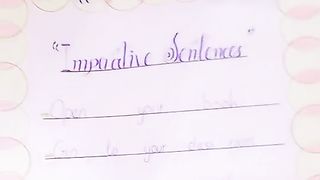 "Impurative Sentences"
Open your book
Go to your class room